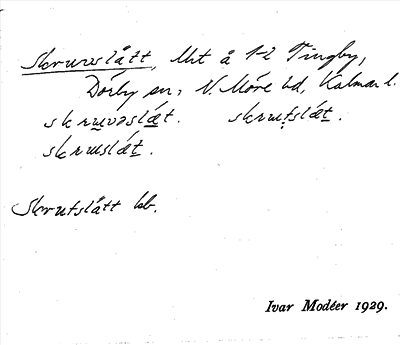 Skruvslått, Mt å 1-2 Tingby,
Dörby sn, N. Möre hd, Kalmar l.
skruvəslǽt. skrutslǽt.
skruslǽt.
Skrutslått kb.
Ivar Modéer 1929.